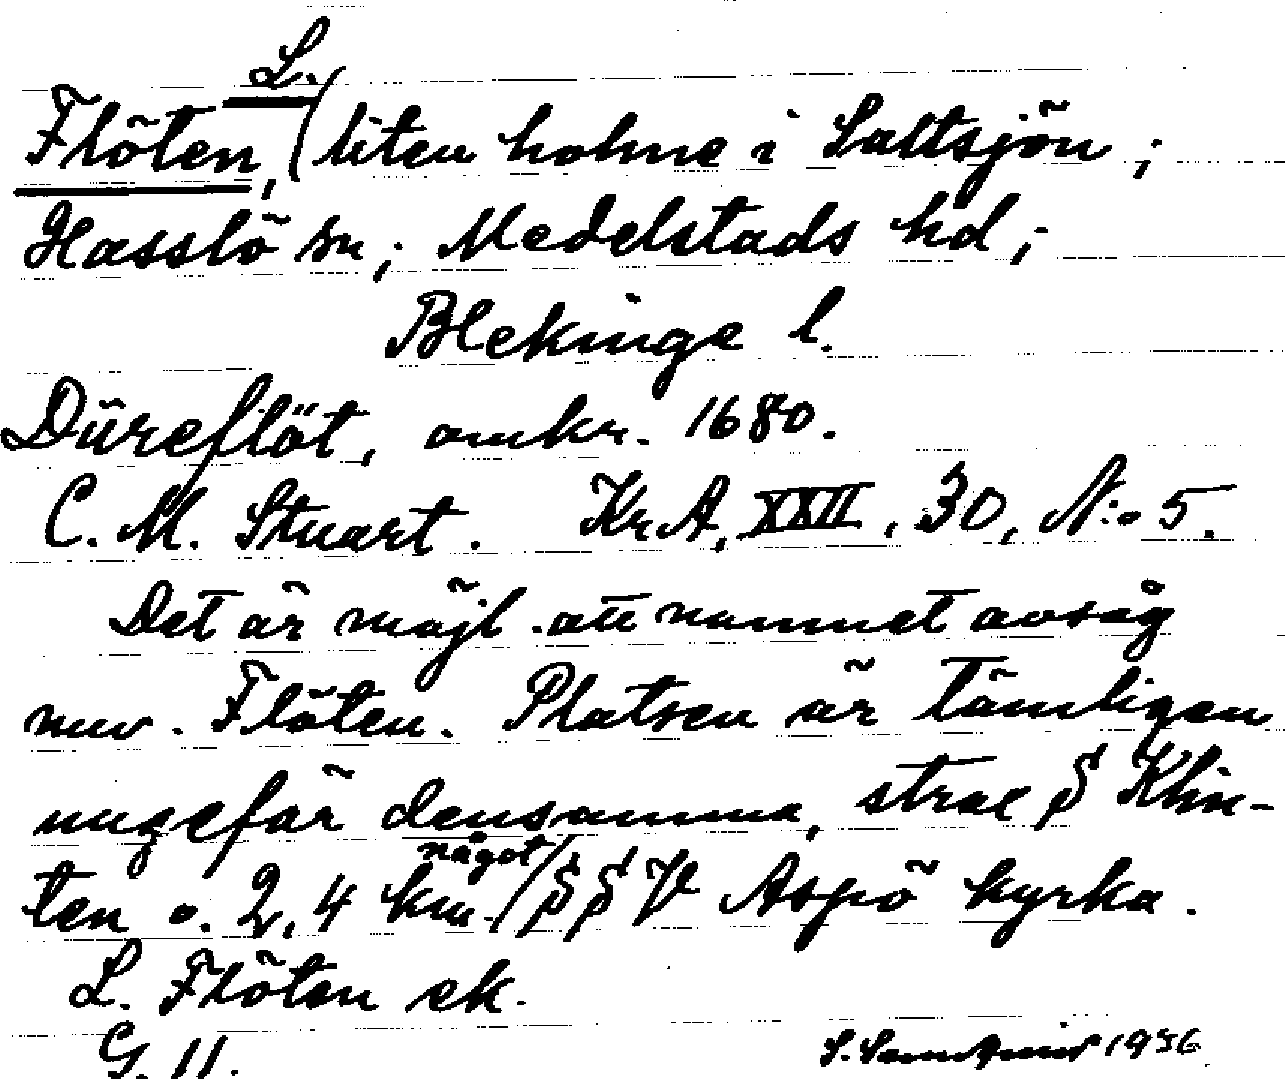 L.
Flöten, liten holme i Saltsjön;
Hasslö sn; Medelstads hd;
Blekinge l.
Düreflöt, omkr. 1680.
C. M. Stuart. KrA, XXII, 30, N:o 5.
Det är möjl. att namnet avsåg
nuv. Flöten. Platsen är tämligen
ungefär densamma, strax S Klin-
något
ten o. 2,4 km SSV Aspö kyrka.
L. Flöten ek.
G. 11.
1936